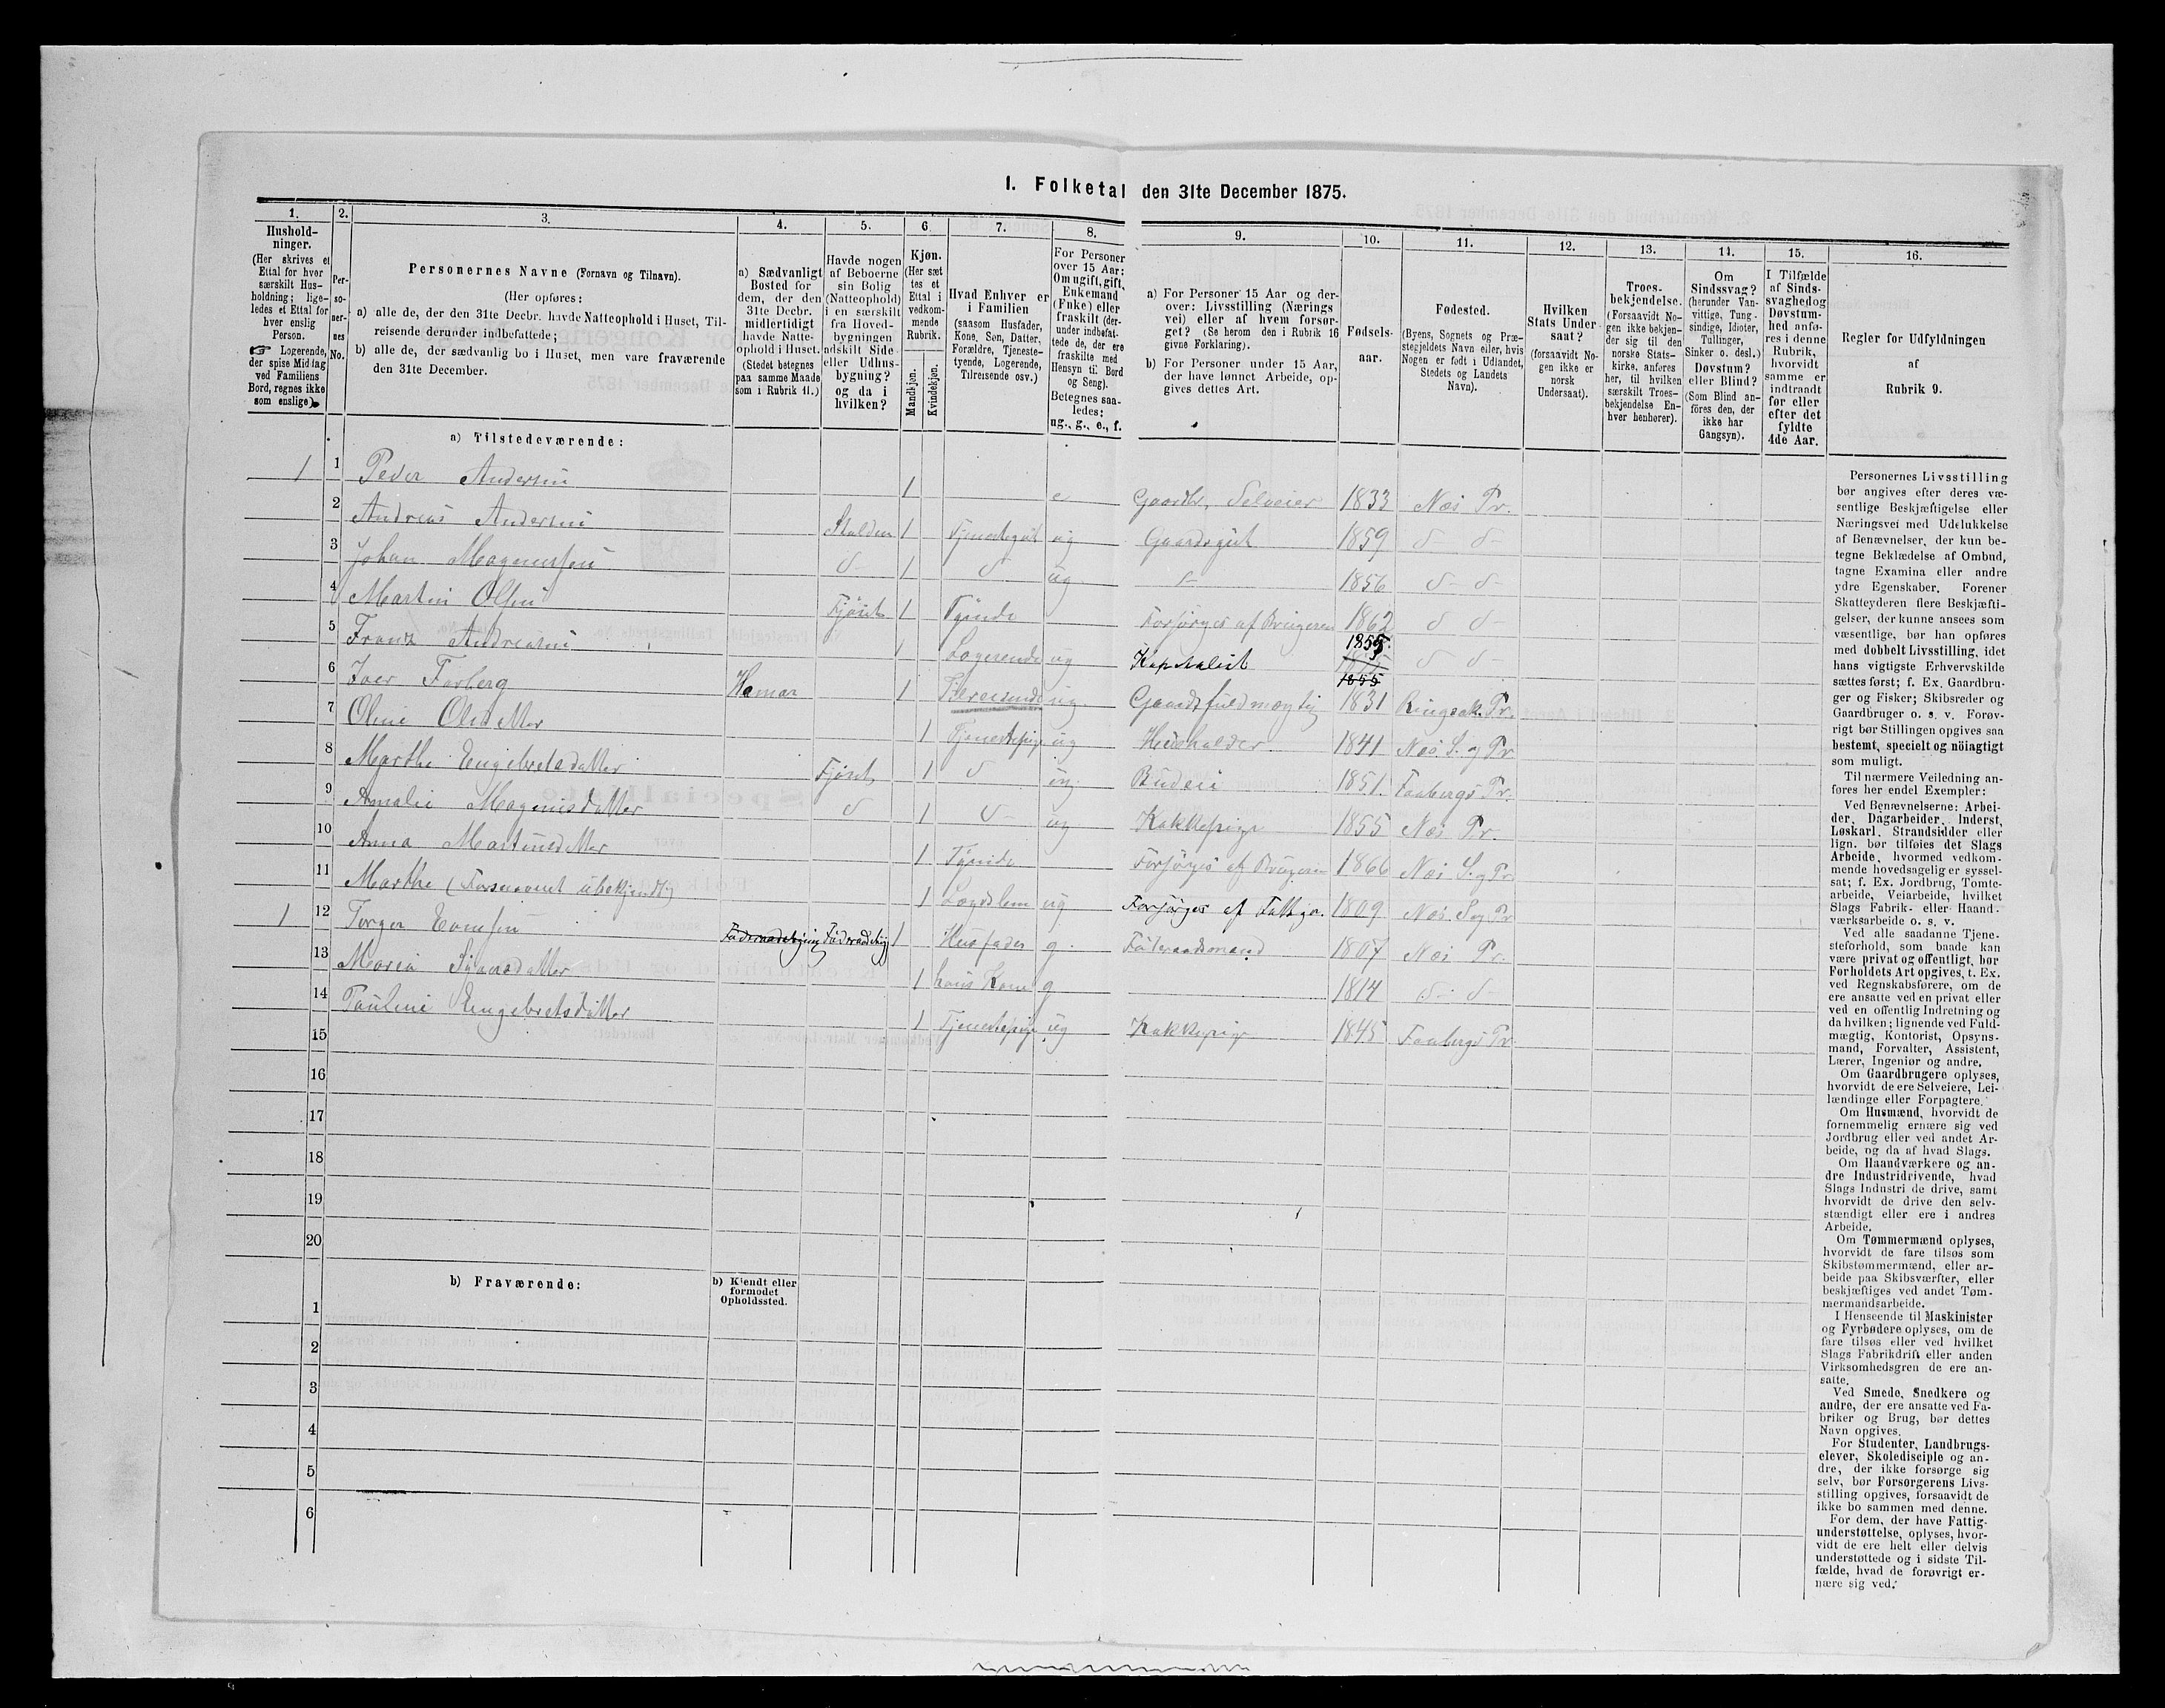 I. Folketal den 31te December 1875.
1. 2. 3. 4. 5. 6. 7. 8. 9. 10. 11. 12. 13. 14. 15. 16.
Hushold-
ninger.
(Her skrives et
Ettal for hver
særskilt Hus-
holdning; lige-
ledes et Ettal for
hver enslig
Person.
☞ Logerende,
der spise Middag
ved Familiens
Bord, regnes ikke
som enslige).
Per-
so-
ner-
nes
No.
Personernes Navne (Fornavn og Tilnavn).
(Her opføres:
a) alle de, der den 31te Decbr. havde Natteophold i Huset, Til-
reisende derunder indbefattede;
b) alle de, der sædvanlig bo i Huset, men vare fraværende
den 31te December.
a) Sædvanligt
Bosted for
dem, der den
31te Decbr.
midlertidigt
havde Natte-
ophold i Huset.
(Stedet betegnes
paa samme Maade
som i Rubrik 11.)
Havde nogen
af Beboerne
sin Bolig
(Natteophold)
i en særskilt
fra Hoved-
bygningen
adskilt Side-
eller Udhus-
bygning?
og da i
hvilken?
Kjøn.
(Her sæt-
tes et
Ettal i
vedkom-
mende
Rubrik.
Mandkjøn.
Kvindekjøn.
Hvad Enhver er
i Familien
(saasom Husfader,
Kone, Søn, Datter,
Forældre, Tjeneste-
tyende, Logerende,
Tilreisende osv.)
For Personer
over 15 Aar:
Om ugift, gift,
Enkemand
(Enke) eller
fraskilt (der-
under indbefat-
tede de, der ere
fraskilte med
Hensyn til Bord
og Seng).
Betegnes saa-
ledes:
ug., g., e., f.
a) For Personer 15 Aar og der-
over: Livsstilling (Nærings
vei) eller af hvem forsør-
get? (Se herom den i Rubrik 16
givne Forklaring).
b) For Personer under 15 Aar,
der have lønnet Arbeide, op-
gives dettes Art.
Fødsels-
aar.
Fødested.
(Byens, Sognets og Præ-
stegjeldets Navn eller, hvis
Nogen er født i Udlandet,
Stedets og Landets
Navn).
Hvilken
Stats Under-
saat?
(forsaavidt No-
gen ikke er
norsk
Undersaat).
Troes-
bekjendelse.
(Forsaavidt No-
gen ikke bekjen-
der sig til den
norske Stats-
kirke, anføres
her, til hvilken
særskilt Troes-
bekjendelse En-
hver henhører).
Om
Sindssvag?
(herunder Van-
vittige, Tung-
sindige, Idioter,
Tullinger,
Sinker o. desl.)
Døvstum?
eller Blind?
(Som Blind an-
føres den, der
ikke har
Gangsyn).
I Tilfælde
af Sinds-
svaghed og
Døvstum-
hed anfø-
res i denne
Rubrik,
hvorvidt
samme er
indtraadt
før eller
efter det
fyldte
4de Aar.
Regler for Udfyldningen
af
Rubrik 9.
a) Tilstedeværende:
1 1 Peder Andersen 1 e Gaardbr. Selveier 1833 Næs Pr.
2 Andreas Andersen Stalden 1 Tjenestegut ug Gaardsgut 1859 d d
3 Johan Magnussen d 1 d ug. d 1856 d d
4 Martin Olsen Fjøset 1 Tyende Forsørges af Brugeren 1862 d d
5 Franz Andreasen 1 Logerende ug Kapitalist 1855 1855 d d
6 Iver Farberg Hamar 1 Tilreisende ug. Gaardsfuldmægtig 1831 Ringsak. Pr.
7 Oline Olsdatter 1 Tjenestepige ug Husholder 1841 Næs S. og Pr
8 Marthe Engebretsdatter Fjøset 1 d ug. Budeie 1851. Faabergs Pr.
9 Amalie Magnusdatter d 1 d ug Kokkepige 1855 Næs Pr.
10 Anna Martinsdatter 1 Tyende Forsørges af Brugeren 1866 Næs S. og Pr
11 Marthe (Farsnavnet ubekjendtg) 1 Lægdslem ug Forsørges af Fattigv. 1809 Næs S. og Pr
1 12 Torger Evensen Føderaadsbygning Føderaadsbyg 1 Husfader g. Føderaadsmand 1807 Næs Pr.
13 Maria Syversdatter 1 hans Kone g 1814 d d
14 Pauline Engebretsdatter 1 Tjenestepige ug Kokkepige 1845 Faabergs Pr
15
16
17
18
19
20
b) Fraværende:
b) Kjendt eller
formodet
Opholdssted.
1
2
3
4
5
6
Personernes Livsstilling
bør angives efter deres væ-
sentlige Beskjæftigelse eller
Næringsvei med Udelukkelse
af Benævnelser, der kun be-
tegne Beklædelse af Ombud,
tagne Examina eller andre
ydre Egenskaber. Forener
Skatteyderen flere Beskjæfti-
gelser, der kunne ansees som
væsentlige, bør han opføres
med dobbelt Livsstilling, idet
hans vigtigste Erhvervskilde
sættes først; f. Ex. Gaardbru-
ger og Fisker; Skibsreder og
Gaardbruger o. s. v. Forøv-
rigt bør Stillingen opgives saa
bestemt, specielt og nöiagtigt
som muligt.
Til nærmere Veiledning an-
føres her endel Exempler:
Ved Benævnelserne: Arbei-
der, Dagarbeider, Inderst,
Løskarl, Strandsidder eller
lign. bør tilføies det Slags
Arbeide, hvormed vedkom-
mende hovedsagelig er syssel-
sat; f. Ex. Jordbrug, Tomte-
arbeide, Veiarbeide, hvilket
Slags Fabrik- eller Haand-
værksarbeide o. s. v.
Ved alle saadanne Tjene-
steforhold, som baade kan
være privat og offentligt, bør
Forholdets Art opgives, t. Ex.
ved Regnskabsførere, om de
ere ansatte ved en privat eller
ved en offentlig Indretning og
da hvilken; lignende ved Fuld-
mægtig, Kontorist, Opsyns-
mand, Forvalter, Assistent,
Lærer, Ingeniør og andre.
Om Gaardbrugere oplyses,
hvorvidt de ere Selveiere, Lei-
lændinge eller Forpagtere.
Om Husmænd, hvorvidt de
fornemmelig ernære sig ved
Jordbrug eller ved andet Ar-
beide, og da af hvad Slags.
Om Haandværkere og an-
dre Industridrivende, hvad
Slags Industri de drive, samt
hvorvidt de drive den selv-
stændigt eller ere i andres
Arbeide.
Om Tømmermænd oplyses,
hvorvidt de fare tilsøs som
Skibstømmermænd, eller ar-
beide paa Skibsværfter, eller
beskjæftiges ved andet Tøm-
mermandsarbeide.
I Henseende til Maskinister
og Fyrbødere oplyses, om de
fare tilsøs eller ved hvilket
Slags Fabrikdrift eller anden
Virksomhedsgren de ere an-
satte.
Ved Smede, Snedkere og
andre, der ere ansatte ved Fa-
briker og Brug, bør dettes
Navn opgives.
For Studenter, Landbrugs-
elever, Skoledisciple og an-
dre, der ikke forsørge sig
selv, bør Forsørgerens Livs-
stilling opgives, forsaavidt de
ikke bo sammen med denne.
For dem, der have Fattig-
understøttelse, oplyses, hvor-
vidt de ere helt eller delvis
understøttede og i sidste Til-
fælde, hvad de forøvrigt er-
nære sig ved.